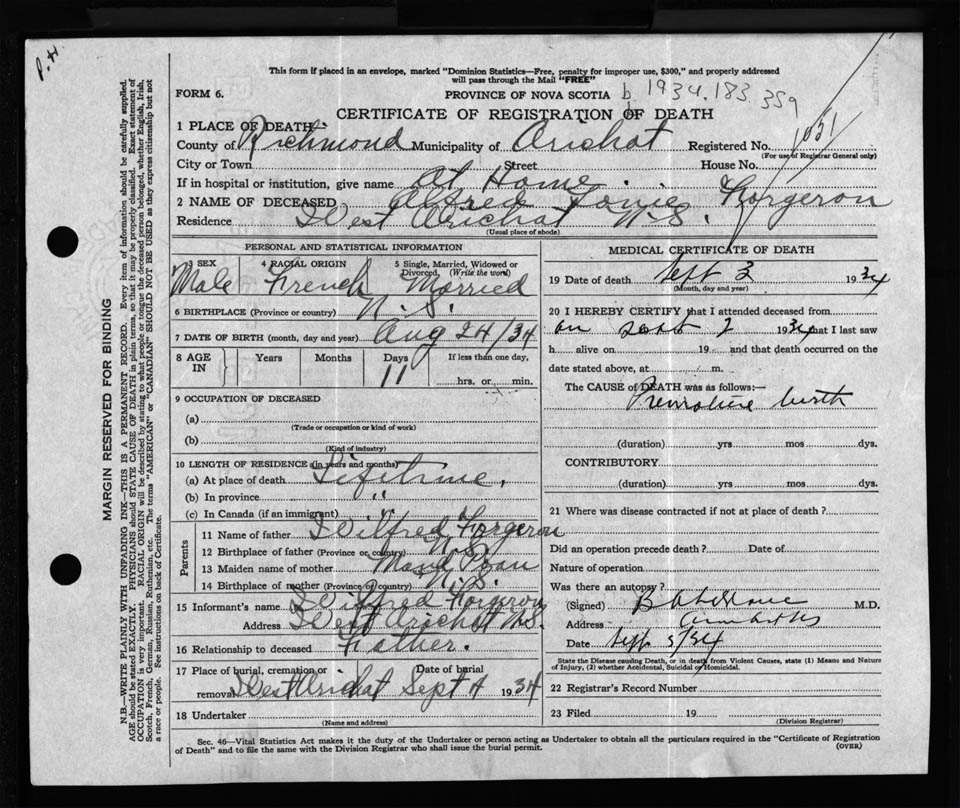 P.H.
This form if placed in an envelope, marked "Dominion Statistics—Free, penalty for improper use, $300," and properly addressed
will pass through the Mail "FREE"
FORM 6. PROVINCE OF NOVA SCOTIA b 1934.183.359
CERTIFICATE OF REGISTRATION OF DEATH
1 PLACE OF DEATH:
County of Richmond Municipality of Arichat Registered No. 1051
(For use of Registrar General only)
City or Town Street House No.
If in hospital or institution, give name At Home.
2 NAME OF DECEASED Alfred Forgeron
Residence West Arichat N.S.
(Usual place of abode)
PERSONAL AND STATISTICAL INFORMATION
3 SEX 4 RACIAL ORIGIN 5 Single, Married, Widowed or Divorced, (Write the word)
Male French Married
6 BIRTHPLACE (Province or country) N.S.
7 DATE OF BIRTH (month, day and year) Aug 24/34
8 AGE IN Years Months Days If less than one day,
11 hrs. or min.
9 OCCUPATION OF DECEASED
(a)
(Trade or occupation or kind of work)
(b)
(Kind of industry)
10 LENGTH OF RESIDENCE (in years and months)
(a) At place of death Lifetime.
(b) In province "
(c) In Canada (if an immigrant)
Parents
11 Name of father Wilfred Forgeron
12 Birthplace of father (Province or country) N.S.
13 Maiden name of mother
14 Birthplace of mother (Province or country) N.S.
15 Informant's name Wilfred Forgeron
Address West Arichat N.S.
16 Relationship to deceased Father.
17 Place of burial, cremation or Date of burial
removal West Arichat Sept 4 1934
18 Undertaker
(Name and address)
MEDICAL CERTIFICATE OF DEATH
19 Date of death Sept 3 1934
(Month, day and year)
20 I HEREBY CERTIFY that I attended deceased from
on Sept 2 1934 that I last saw
h alive on 19 and that death occurred on the
date stated above, at m.
The CAUSE of DEATH was as follows:—
Premature birth
(duration) yrs mos dys.
CONTRIBUTORY
(duration) yrs mos dys.
21 Where was disease contracted if not at place of death?
Did an operation precede death? Date of
Nature of operation
Was there an autopsy?
(Signed) M.D.
Address
Date Sept 5/34
State the Disease causing Death, or in death from Violent Causes, state (1) Means and Nature
of Injury, (2) whether Accidental, Suicidal or Homicidal.
22 Registrar's Record Number
23 Filed 19
(Division Registrar)
Sec. 46—Vital Statistics Act makes it the duty of the Undertaker or person acting as Undertaker to obtain all the particulars required in the "Certificate of Registration
of Death" and to file the same with the Division Registrar who shall issue the burial permit. (OVER)
MARGIN RESERVED FOR BINDING
N.B.—WRITE PLAINLY WITH UNFADING INK—THIS IS A PERMANENT RECORD. Every item of information should be carefully supplied.
AGE should be stated EXACTLY. PHYSICIANS should STATE CAUSE OF DEATH in plain terms, so that it may be properly classified. Exact statement of
OCCUPATION is very important. RACIAL ORIGIN will be described by stating to what people or tongue the deceased person belonged, whether English, Irish,
Scotch, French, German, Russian, Ruthenian, etc. The terms "AMERICAN" or "CANADIAN" SHOULD NOT BE USED as they express citizenship but not
a race or people. See instructions on back of Certificate.